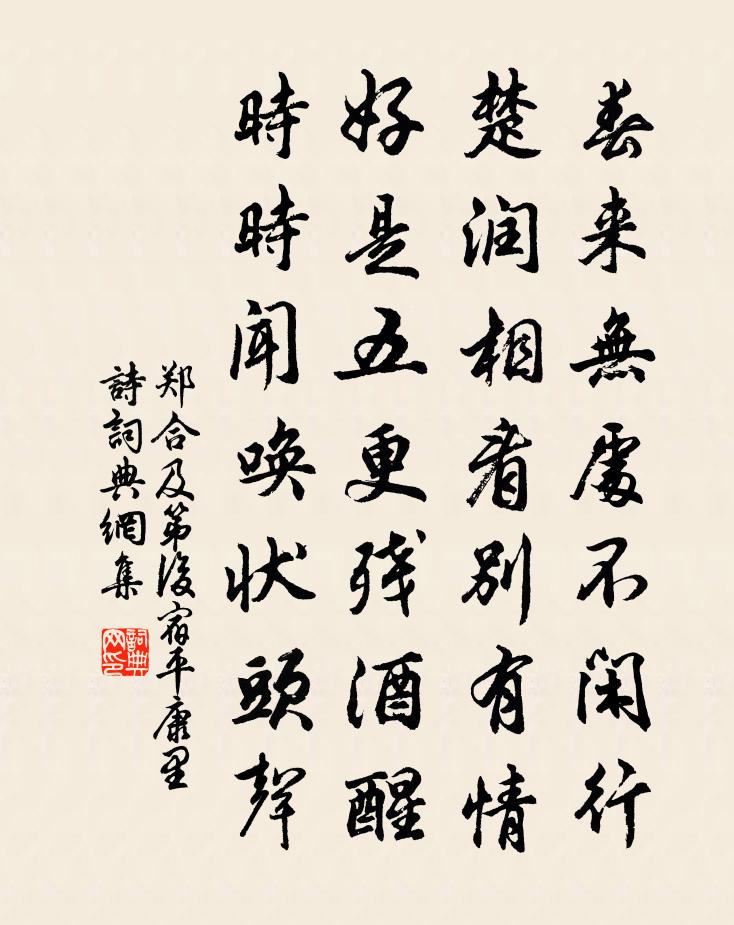 春来無處不闲行
楚润相看别有情
好是五更残酒醒
時時闻唤状頭聲
郑合及第後宿平康里
詩詞典網集
詞典网印